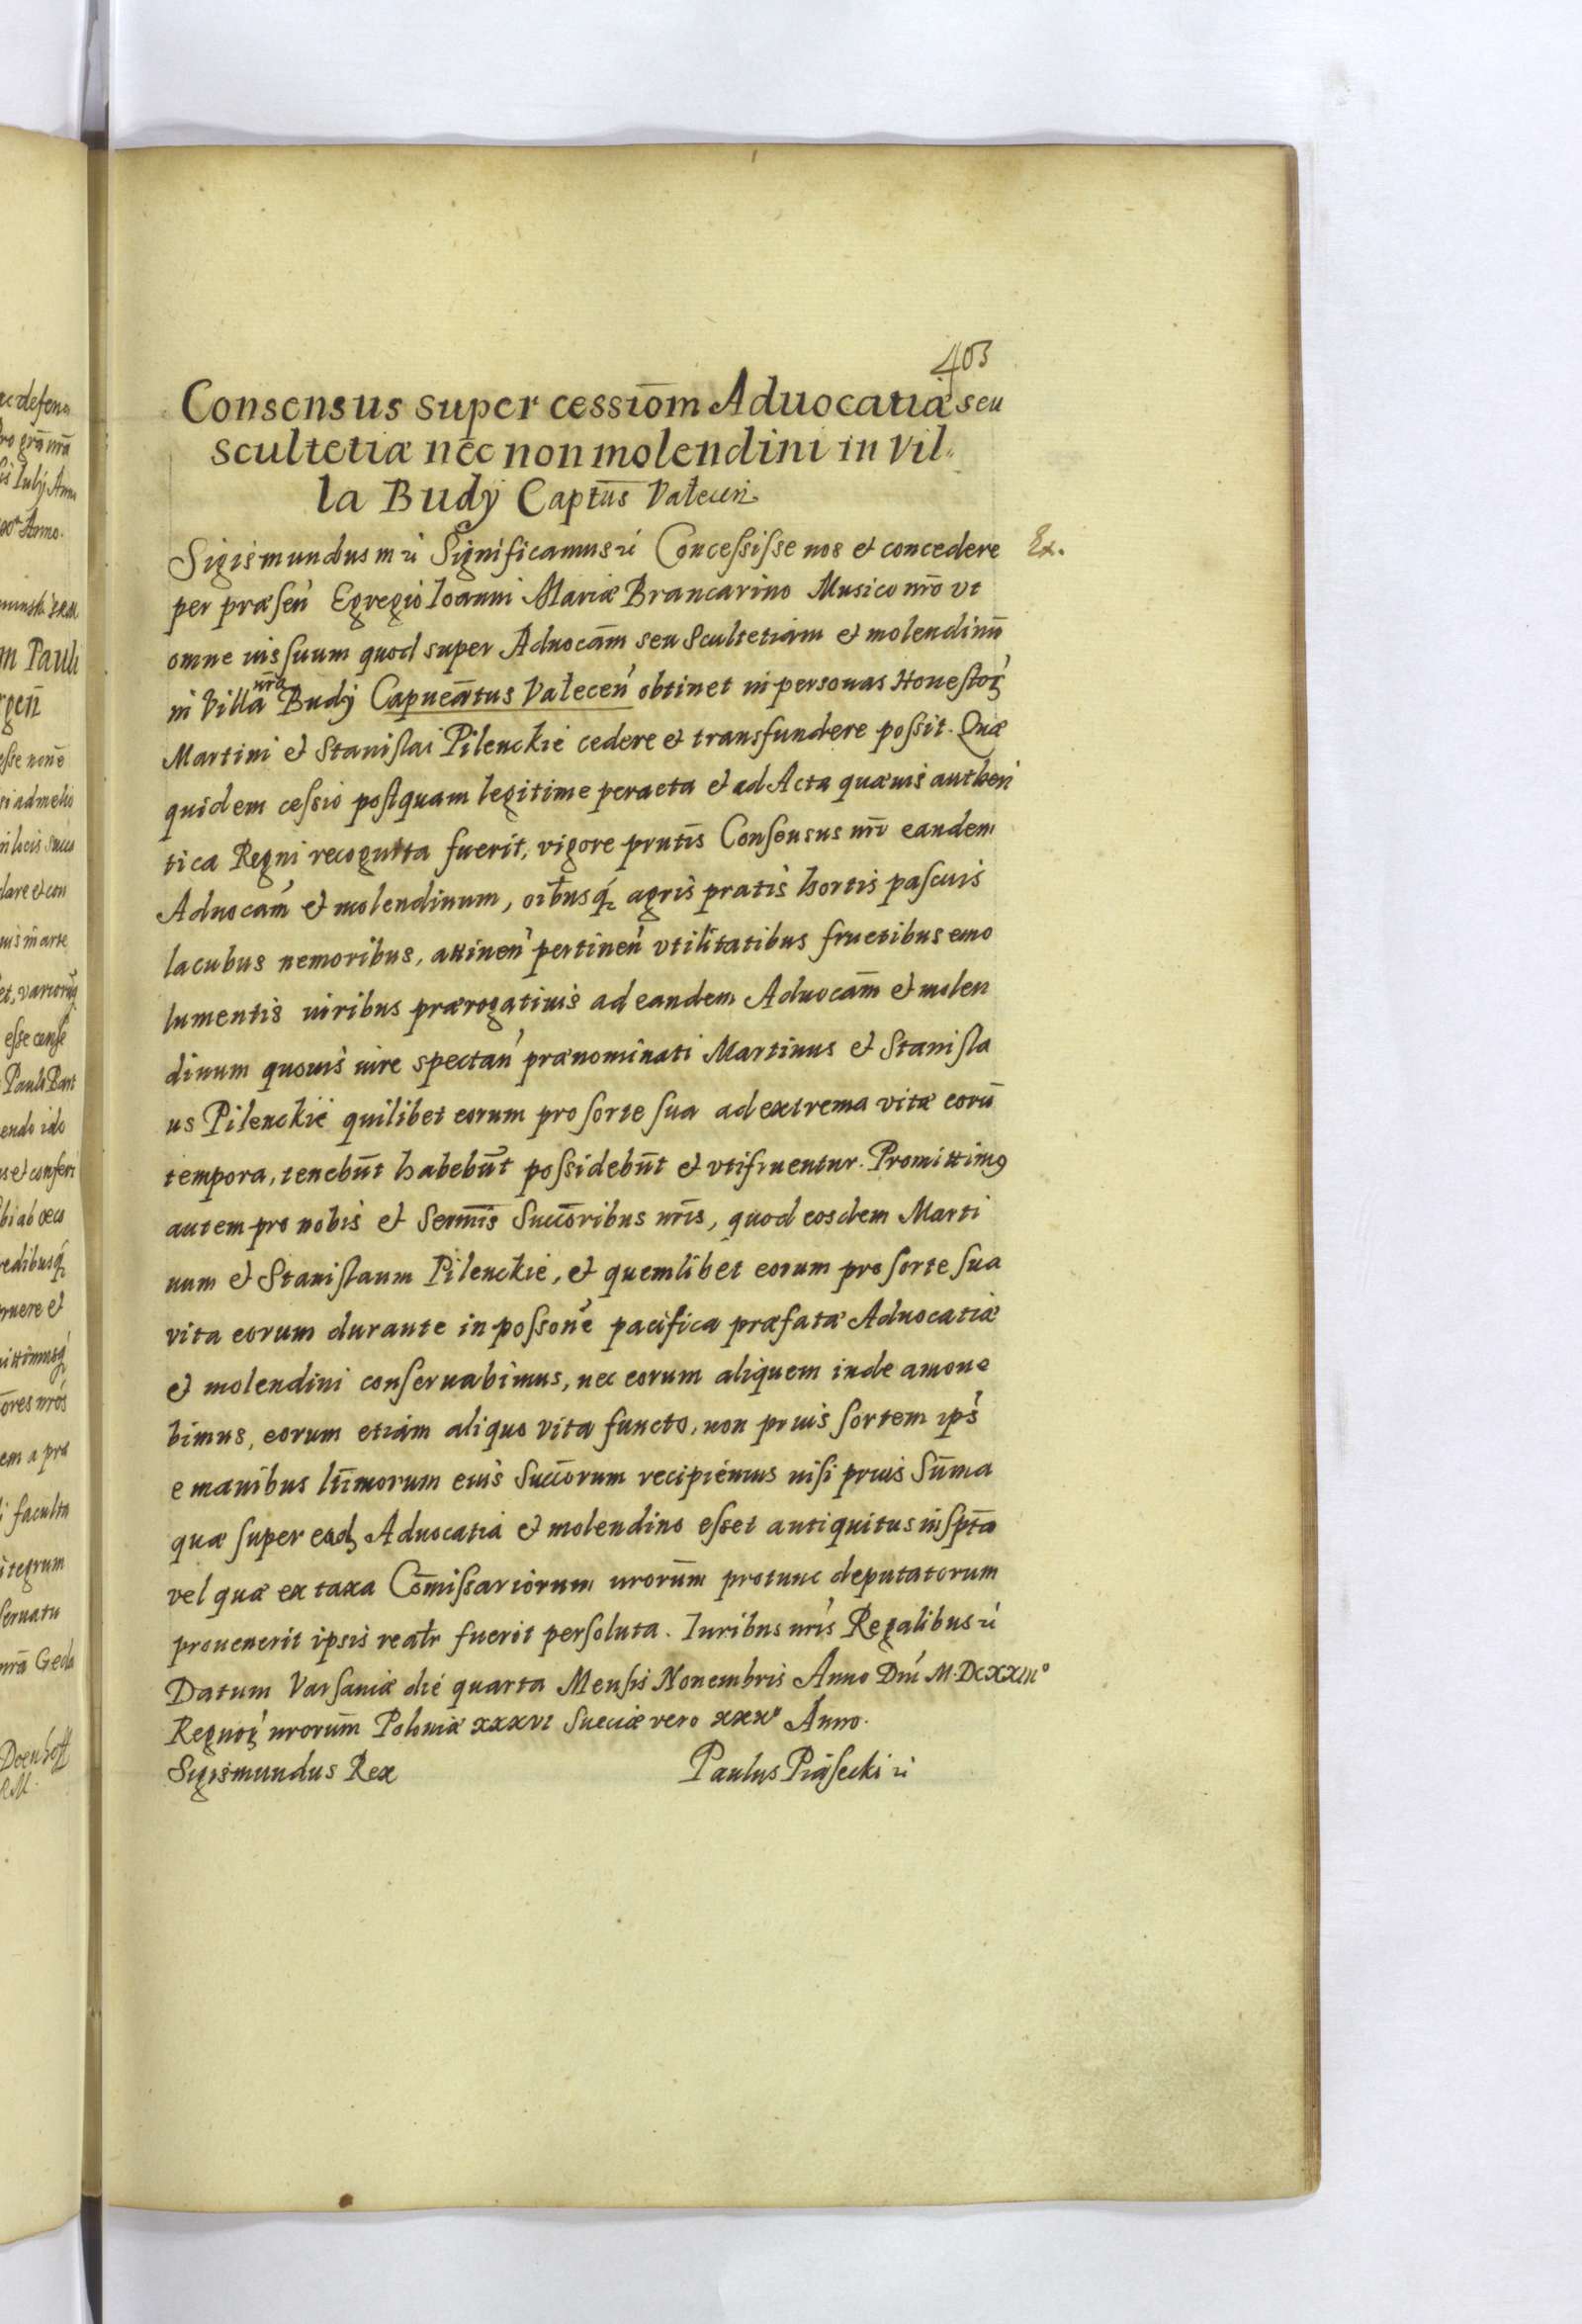 403
Consensus super cessiōm Aduocatiæ seu
scultetiæ nēc non molendini in Vil-
la Budÿ Captūs Valecen
Sigismundus m etc Significamus etc Concessisse nos et concedere
Ex.
per præsen Egregio Ioanni Mariæ Brancarino Musico nrō vt
omne ius suum quod super Aduocām seu Scultetiam et molendinū
nrā
in Villa Budÿ Capneātus Vałecen obtinet in personas Honestoꝝ
Martini et Stanislai Pilenckie cedere et transfundere possit. Quæ
quidem cessio postquam legitime peracta et ad Acta quæuis authen
tica Regni recognita fuerit, vigore prntīs Consensus nrī eandem
Aduocam et molendinum, oibusq agris pratis hortis pascuis
lacubus nemoribus, attinen pertinen vtilitatibus fructibus emo
lumentis iuribus prærogatiuis ad eandem Aduocām et molen
dinum quouis iure spectan prænominati Martinus et Stanisla
us Pilenckie quilibet eorum pro sorte sua ad extrema vitæ eorū
tempora, tenebūt habebūt possidebūt et vtifruentur. Promittimꝰ
autem pro nobis et Sermīs Succōribus nrīs, quod eosdem Marti
num et Stanislaum Pilenckie, et quemlibet eorum pro sorte sua
vita eorum durante in possone pacifica præfatæ Aduocatiæ
et molendini conseruabimus, nec eorum aliquem inde amoue
bimus, eorum etiam aliquo vita functo, non prius sortem ips
e manibus ltīmorum eius Succōrum recipiemus nisi prius Sūma
quæ super eadꝫ Aduocatia et molendino esset antiquitus inspta
vel quæ ex taxa Cōmissariorum nrorūm protunc deputatorum
prouenerit ipsis realr fuerit persoluta. Iuribus nrīs Regalibus etc
Datum Varsauiæ die quarta Mensis Nouembris Anno Dnī M.DCXXIIIº
Regnoꝝ nrorūm Poloniæ xxxvi Sueciæ vero xxxº Anno.
Sigismundus Rex
Paulus Piasecki etc